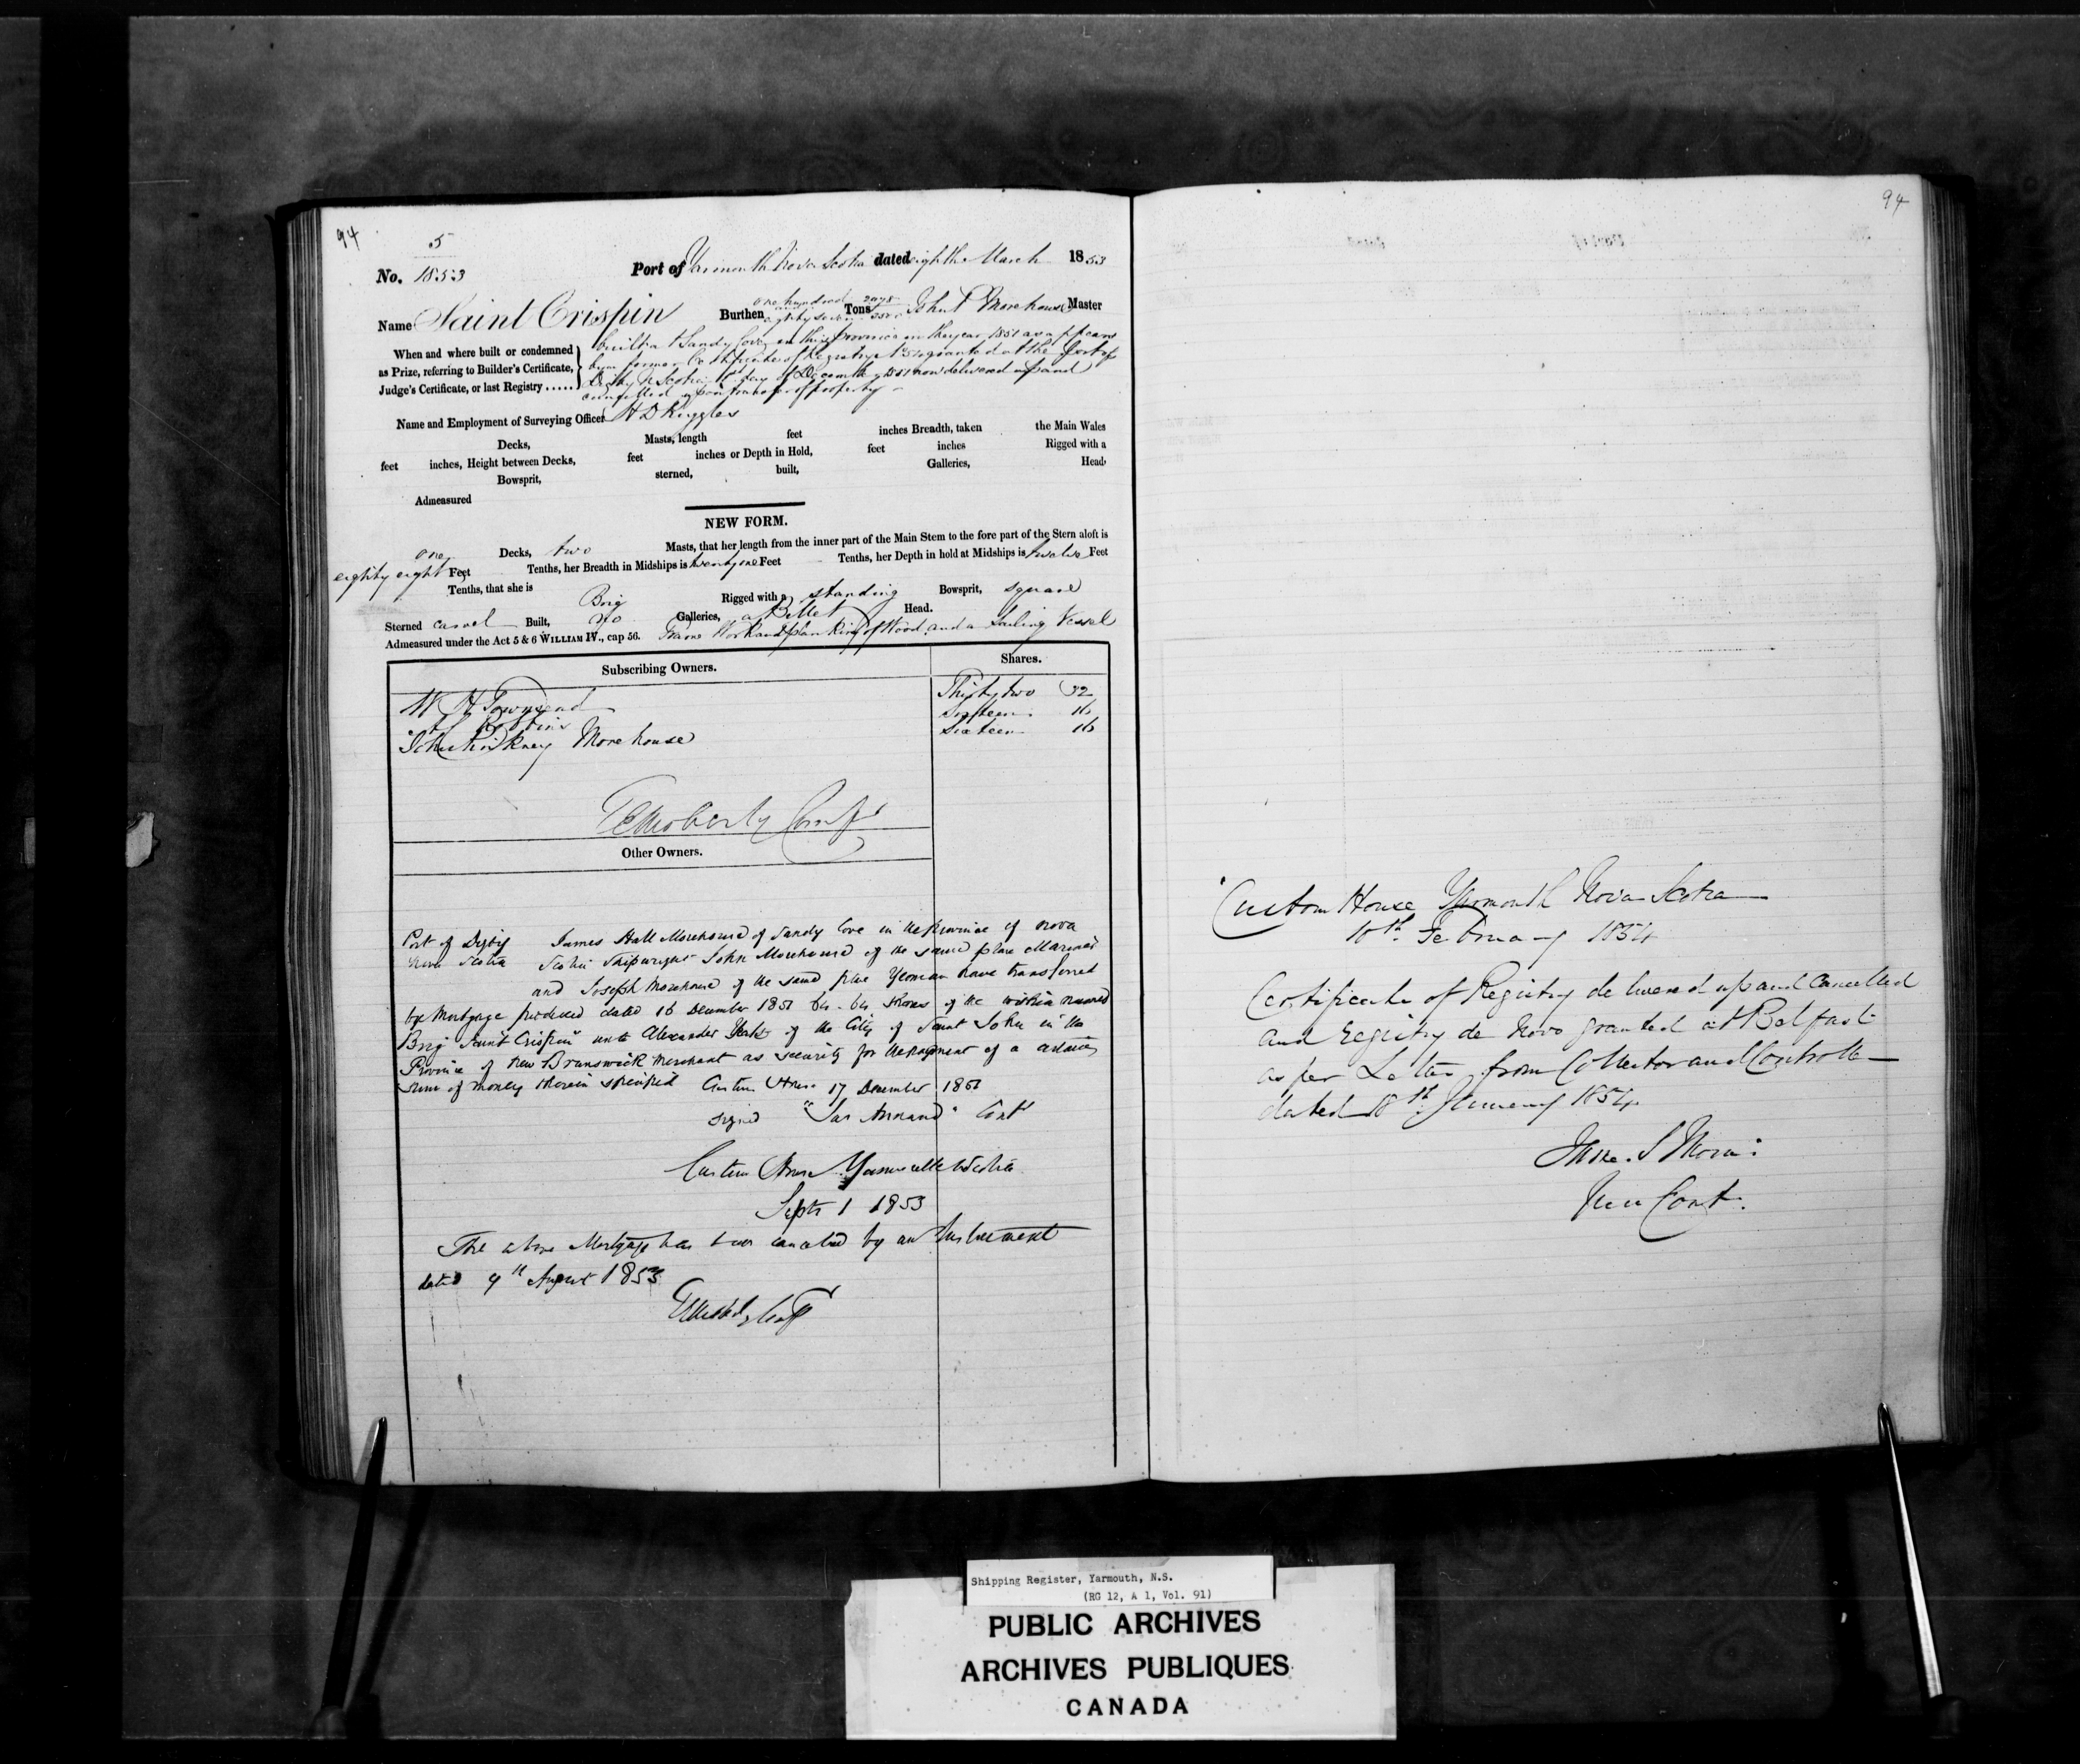 94
5
No. 1853
Port of Yarmouth Nova Scotia dated eighth March 1853
Name Saint Crispin Burthen one hundred and eighty seven Tons John P Morehouse Master
When and where built or condemned
as Prize, referring to Builder's Certificate,
Judge's Certificate, or last Registry .....
built at Sandy Cove in this Province in the year 1851 as appears
by a former Certificate of Registry granted at the Port of
Digby N Scotia day of December 1851 now delivered up and
cancelled upon transfer of property
Name and Employment of Surveying Officer H D Ruggles
Decks, Masts, length feet inches Breadth, taken the Main Wales
feet inches, Height between Decks, feet inches or Depth in Hold, feet inches Rigged with a
Bowsprit, sterned, built, Galleries, Head,
Admeasured
NEW FORM.
one Decks, two Masts, that her length from the inner part of the Main Stem to the fore part of the Stern aloft is
eighty eight Feet Tenths, her Breadth in Midships is twenty one Feet Tenths, her Depth in hold at Midships is twelve Feet
Tenths, that she is Brig Rigged with a standing Bowsprit, square
Sterned carvel Built, no Galleries, a Billet Head.
Admeasured under the Act 5 & 6 WILLIAM IV., cap 56. Frame Work and planking of Wood and a Sailing Vessel
Subscribing Owners. Shares.
W H Townsend Thirty two 32
Robbins Sixteen 16
John Pinkney Morehouse Sixteen 16
Other Owners.
Port of Digby James Hall Morehouse of Sandy Cove in the Province of Nova
Nova Scotia Scotia Shipwright John Morehouse of the same place Mariner
and Joseph Morehouse of the same place Yeoman have transferred
by Mortgage produced dated 16 December 1851 64 . 64 Shares of the within named
Brig "Saint Crispin" unto Alexander Yeats of the City of Saint John in the
Province of New Brunswick Merchant as security for the payment of a certain
sum of money therein specified Custom House 17 December 1851
signed Cont
Custom House Yarmouth N Scotia
Septr 1 1853
The above Mortgage has been canceled by an Instrument
dated 9th August 1853
94
Custom House Yarmouth Nova Scotia
10th February 1854
Certificate of Registry delivered up and Cancelled
and Registry de Novo granted at Belfast
as per Letter from Collector and Controller
dated 18th January 1854
Cont.
Shipping Register, Yarmouth, N.S.
(RG 12, A 1, Vol. 91)
PUBLIC ARCHIVES
ARCHIVES PUBLIQUES
CANADA